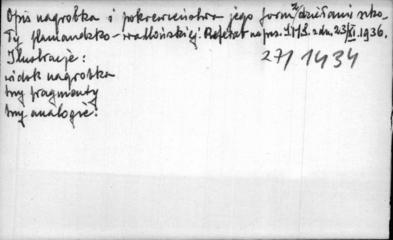 Opis nagrobka i pokrewieństwa jego form z dziełami szko-
ły flamandzko-wallońskiej. Referat na pos. z dn. 23/XI. 1936.
Ilustracje:
widok nagrobka
trzy fragmenty
trzy analogie.
27/1434